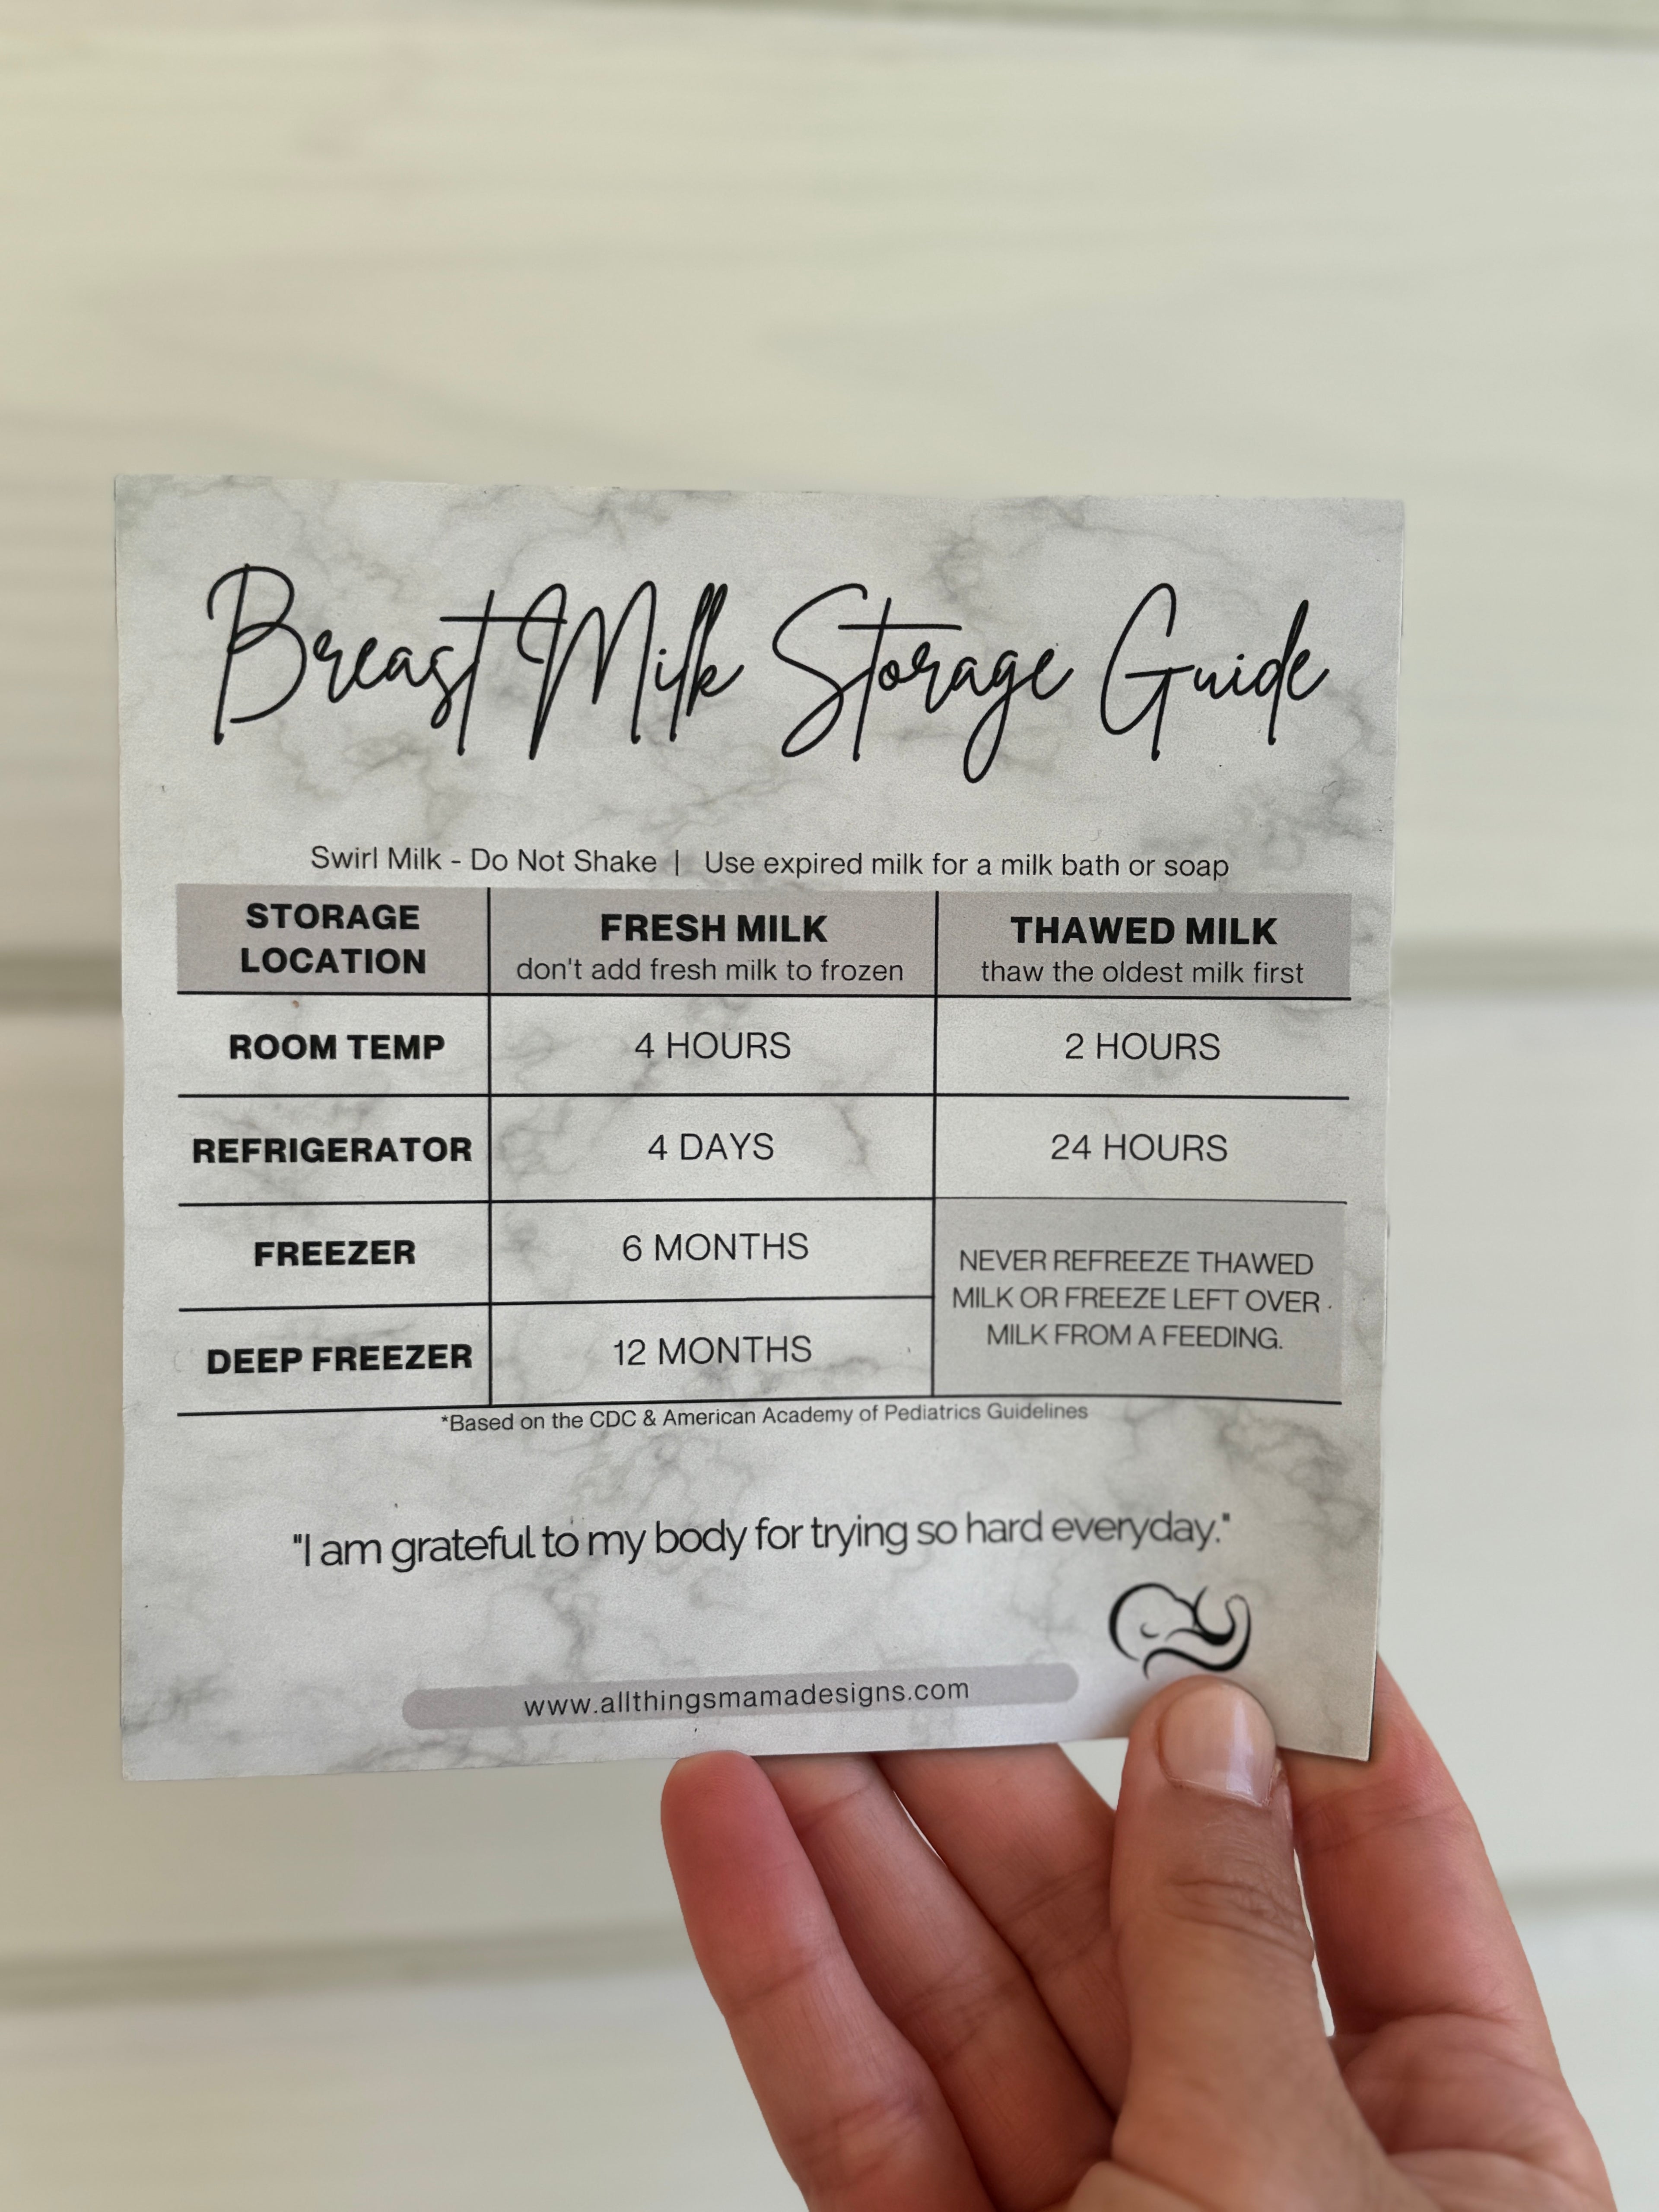 Breast Milk Storage Guide
Swirl Milk - Do Not Shake | Use expired milk for a milk bath or soap
STORAGE LOCATION
FRESH MILK
don't add fresh milk to frozen
THAWED MILK
thaw the oldest milk first
ROOM TEMP 4 HOURS 2 HOURS
REFRIGERATOR 4 DAYS 24 HOURS
FREEZER 6 MONTHS
DEEP FREEZER 12 MONTHS
NEVER REFREEZE THAWED
MILK OR FREEZE LEFT OVER
MILK FROM A FEEDING.
*Based on the CDC & American Academy of Pediatrics Guidelines
"I am grateful to my body for trying so hard everyday."
www.allthingsmamadesigns.com